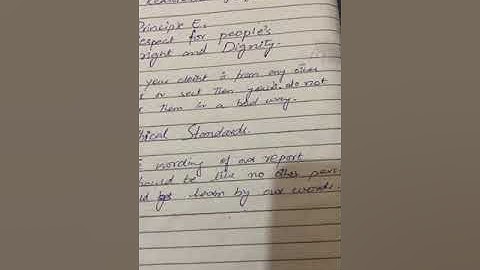 Principle E.
respect for people's
right and Dignity.
your client is from any other
or sect then you do not
them in a bad way.
ical Standards.
wording of our report
should be like no other pers
learn by our words.